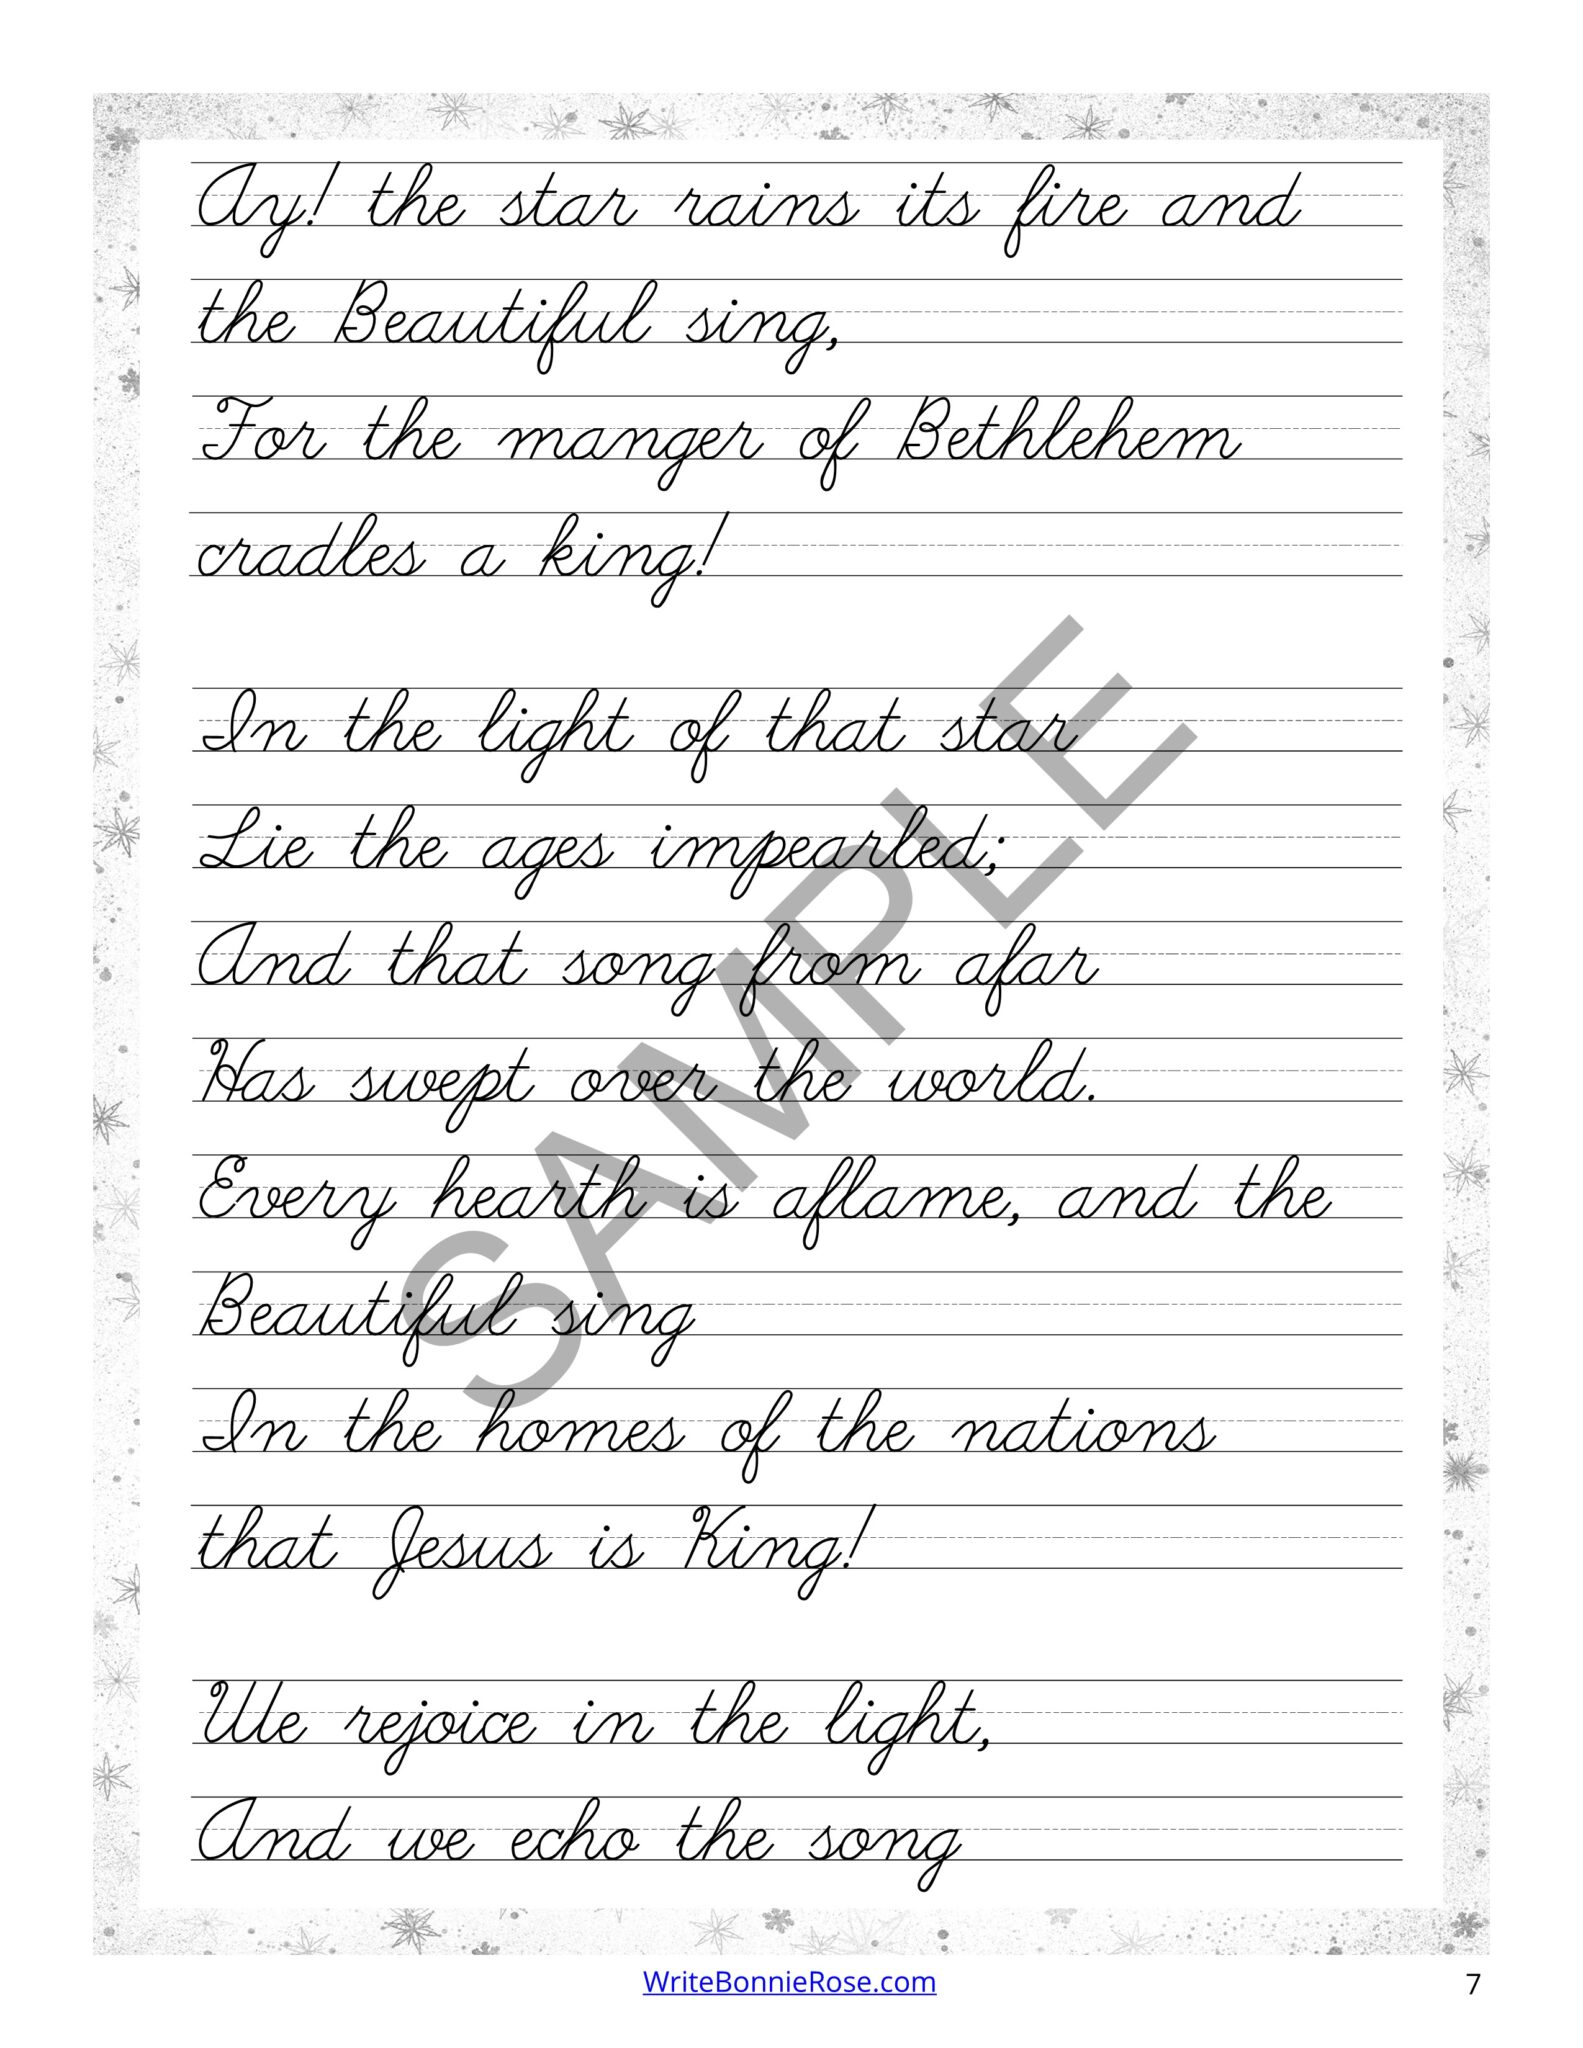 Ay! the star rains its fire and
the Beautiful sing,
For the manger of Bethlehem
cradles a king!
In the light of that star
Lie the ages impearled;
And that song from afar
Has swept over the world.
Every hearth is aflame, and the
Beautiful sing
In the homes of the nations
that Jesus is King!
We rejoice in the light,
And we echo the song
SAMPLE
WriteBonnieRose.com
7